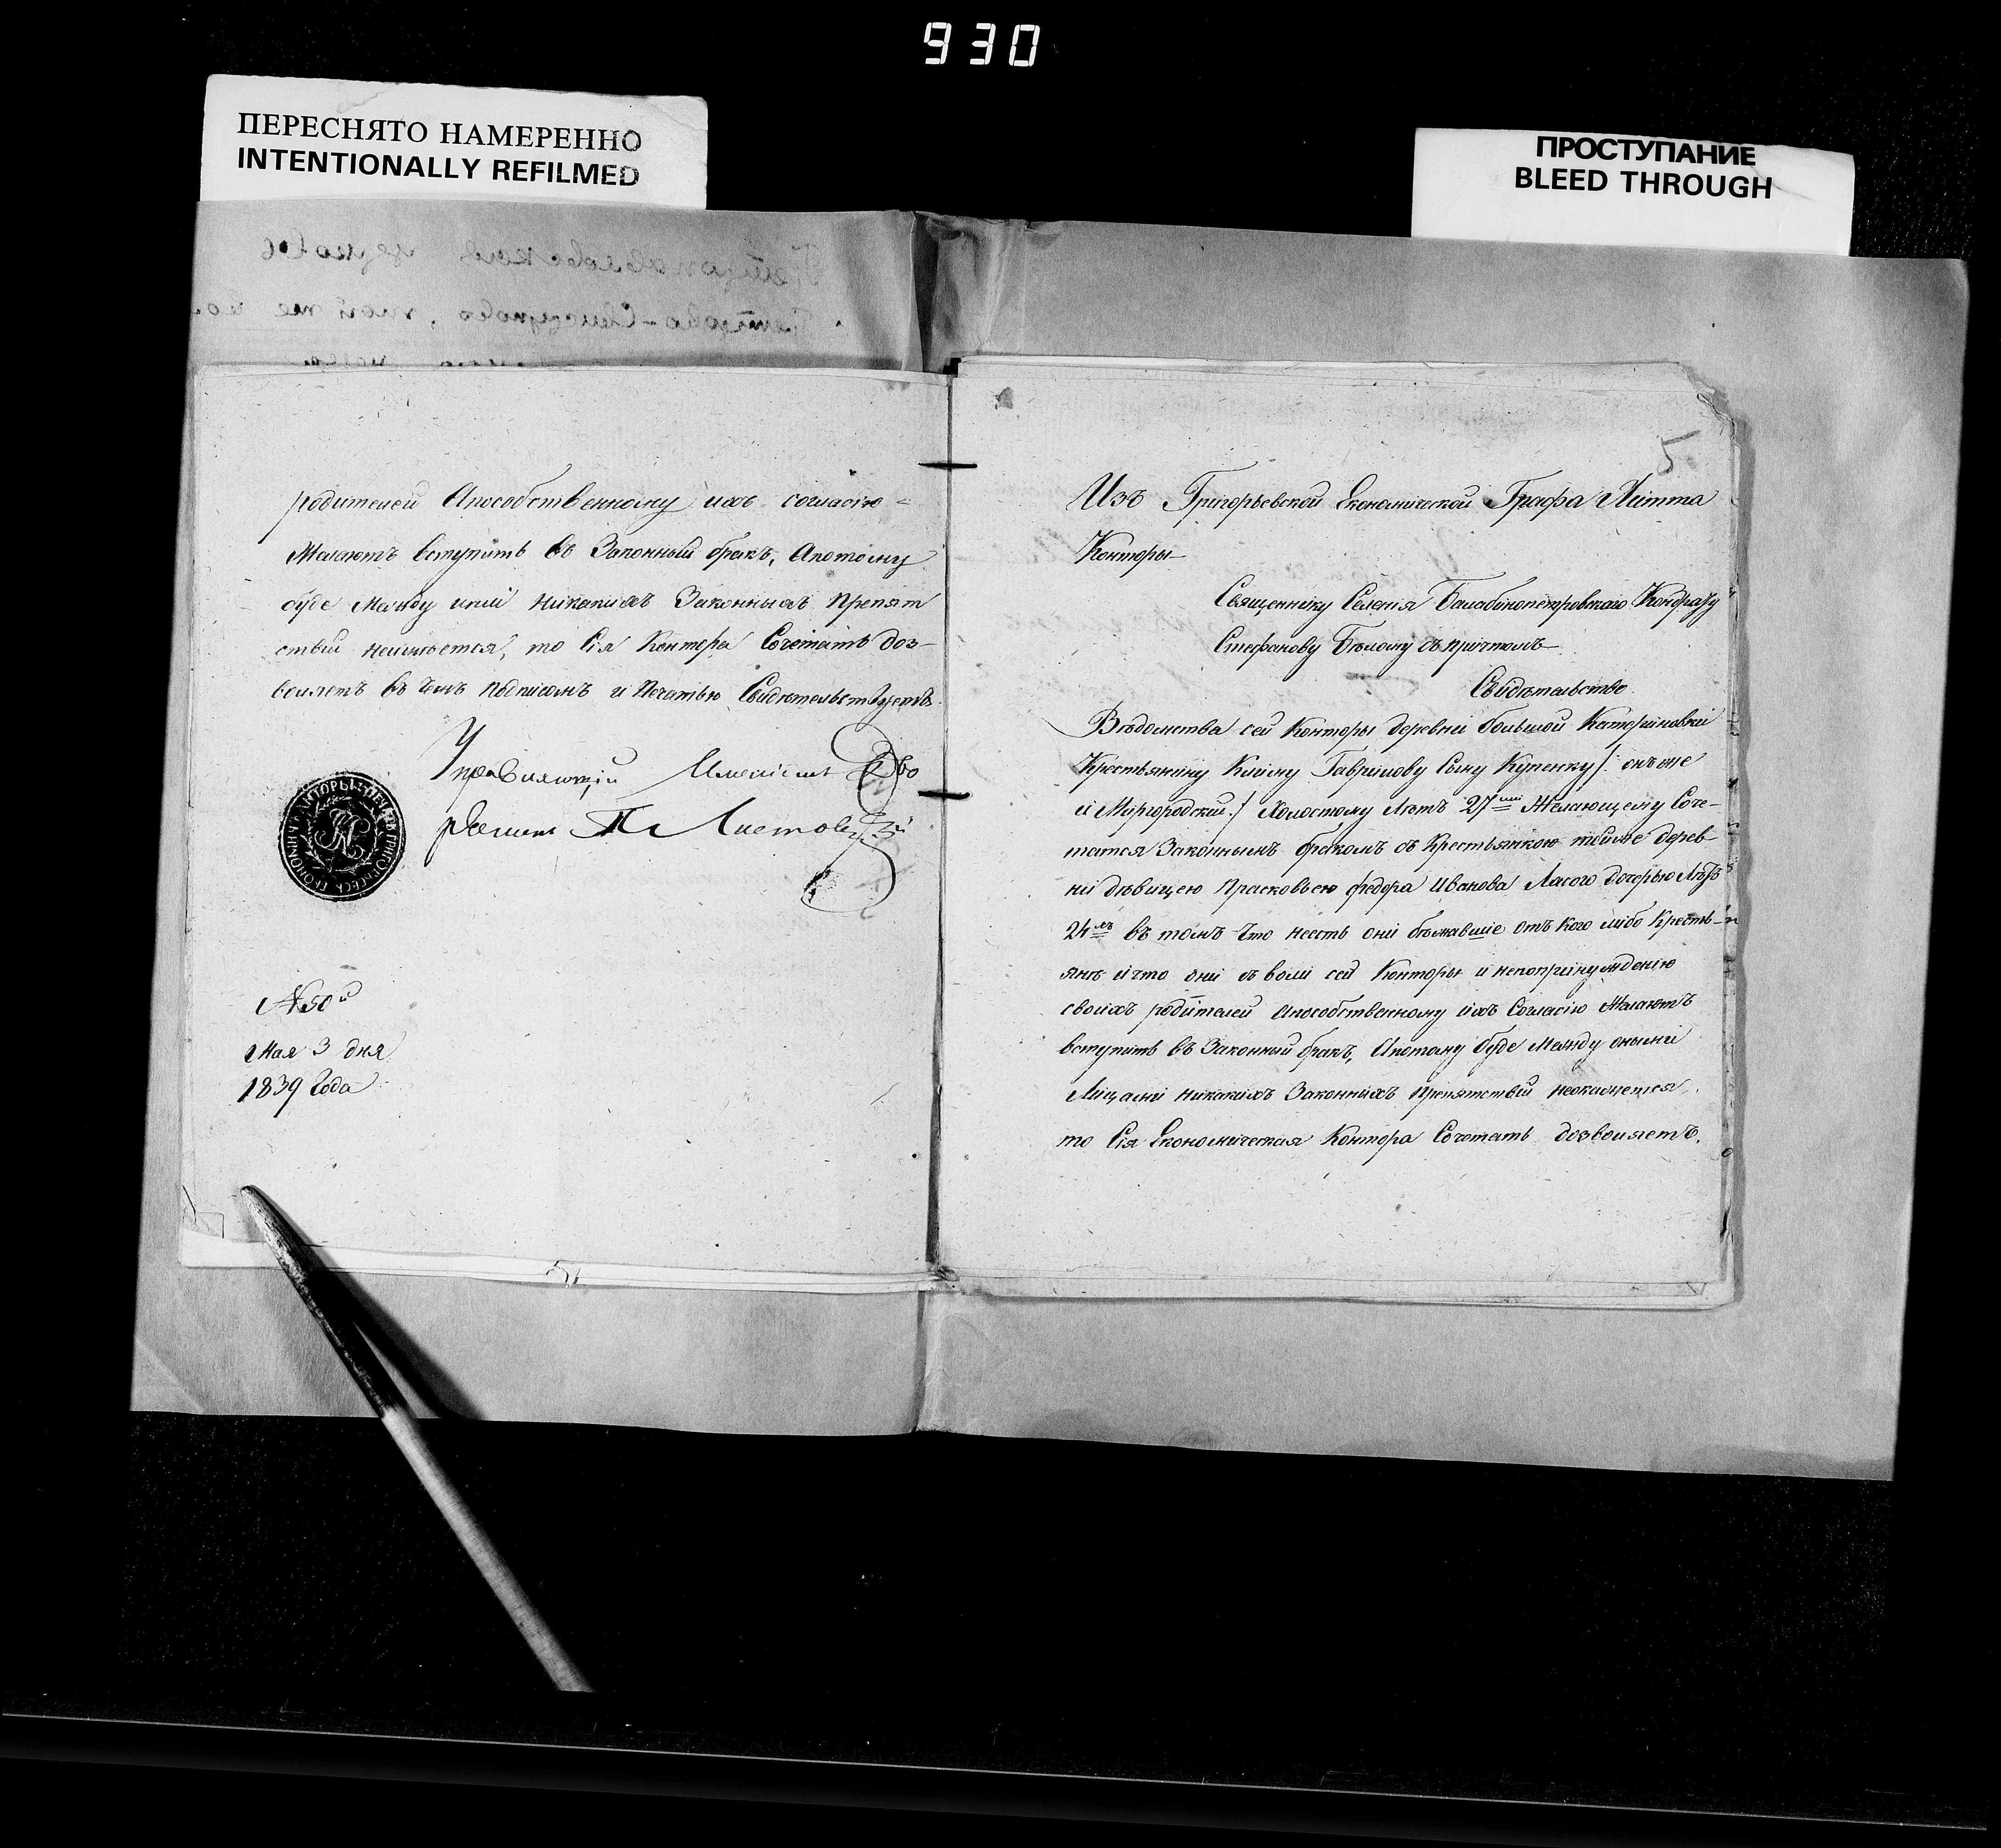 930
ПЕРЕСНЯТО НАМЕРЕННО
INTENTIONALLY REFILMED
ПРОСТУПАНИЕ
BLEED THROUGH
родителей Апособственному ихъ согласію
Желаютъ вступить въ Законный бракъ, Апотому
буде Между ими никакихъ Законныхъ Препят
ствій неимѣется, то Сія Контора Сочетать доз-
воляетъ въ чемъ подписомъ и Печатью Свидѣтельствуетъ.
Управляющій Имѣніемъ
№ 50й
Мая 3 дня
1839 Года
5
Изъ Григорьевской Економической Графа Литта
Конторы
Священнику Селенія Балабонопетровскаго Кондрату
Стефанову Бѣлому съ причтомъ
Свидѣтельство
Вѣдомства сей Конторы деревни большой Катериновки
Крестьянину Климу Гаврилову Сыну Купенку /: онъ же
и Миргородский :/ Холостому Лѣтъ 27ми Желающему Соче-
татся Законнымъ бракомъ съ Крестьянкою тойже дерев-
ни дѣвицею Прасковьею Федора Иванова Ласого дочерью Лѣтъ
24хъ въ томъ Что несть они бѣжавшіе отъ Кого либо Кресть-
янъ и что они съ воли сей Конторы и непопринужденію
своихъ родителей Апособственному ихъ Согласію Желаютъ
вступить въ Законный бракъ, Апотому буде Между оными
Лицами никакихъ Законныхъ Препятствій неокажется
то Сія Економическая Контора Сочетать дозволяетъ.